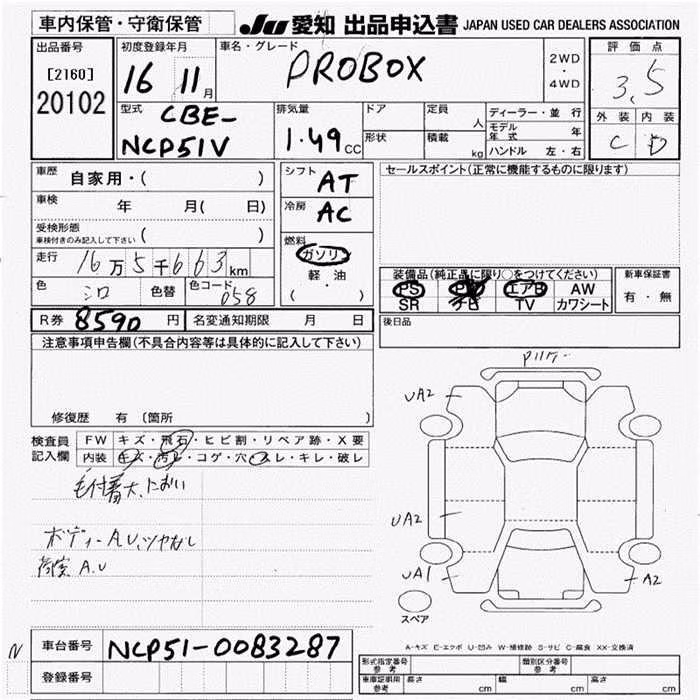 車内保管・守衛保管
JU 愛知 出品申込書 JAPAN USED CAR DEALERS ASSOCIATION
出品番号
[2160]
20102
初度登録年月
16 年 11 月
車名・グレード
PROBOX
2WD
・
4WD
評価点
3.5
外装 内装
C D
型式
CBE-
NCP51V
排気量
1.49 CC
ドア
形状
定員
人
積載
kg
ディーラー・並行
モデル年式 年
ハンドル 左・右
車歴 自家用・( )
車検 年 月( 日)
受検形態
車検付きのみ記入して下さい ( )
走行 16万5千663km
色 シロ 色替 色コード 058
シフト AT
冷房 AC
燃料
ガソリン
軽油
( ・ )
セールスポイント(正常に機能するものに限ります)
装備品(純正品に限り○をつけてください)
PS PW エアB AW
SR ナビ TV カワシート
新車保証書
有・無
R券 8590 円 名変通知期限 月 日
後日品
注意事項申告欄(不具合内容等は具体的に記入して下さい)
修復歴 有 〔箇所 〕
検査員
記入欄
FW キズ・飛石・ヒビ割・リペア跡・X要
内装 キズ・汚レ・コゲ・穴・スレ・キレ・破レ
ボディーAU、ツヤなし
荷室 A.U
UA2
UA2
UA1
A2
スペア
A-キズ E-エクボ U-凹み W-補修跡 S-サビ C-腐食 XX-交換済
N
車台番号 NCP51-0083287
登録番号
形式指定番号
参考
類別区分番号
参考
車庫証明用
参考
長さ cm 幅 cm 高さ cm